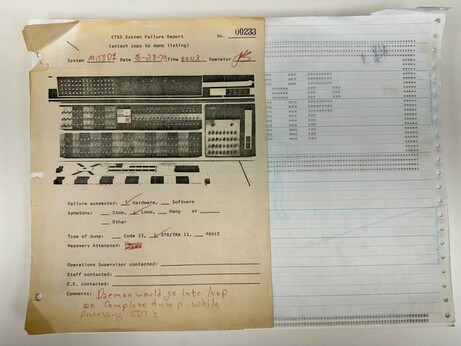 CTSS System Failure Report No. 00233
(attach copy to dump listing)
System Date Time 2048 Operator
Failure suspected: Hardware, Software
Symptoms: Stop, Loop, Hang at
Other
Type of dump: Code 13, STR/TRA 11, PANIC
Recovery Attempted:
Operations Supervisor contacted:
Staff contacted:
C.E. contacted:
Comments: Daemon would go into loop
on complete dump while
processing